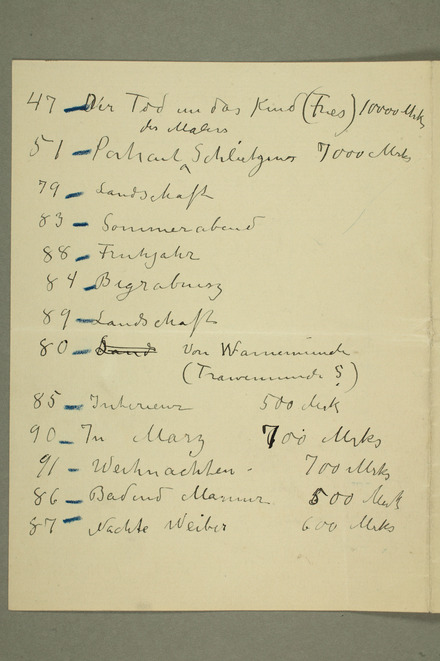 47 – Der Tod un das Kind (Fries) 10000 Mrks
des Malers
51 – Portrait Schlitgens 7000 Mrks
79 – Landschaft
83 – Sommerabend
88 – Fruhjahr
84 – Begrabung
89 – Landschaft
80 – Land von Warnemünde
(Travemunde ?)
85 – Interieur 500 Mrk
90 – In Marz 700 Mrks
91 – Weihnachten - 700 Mrks
86 – Badend Manner 500 Mrk
87 – Nackte Weiber 600 Mrks